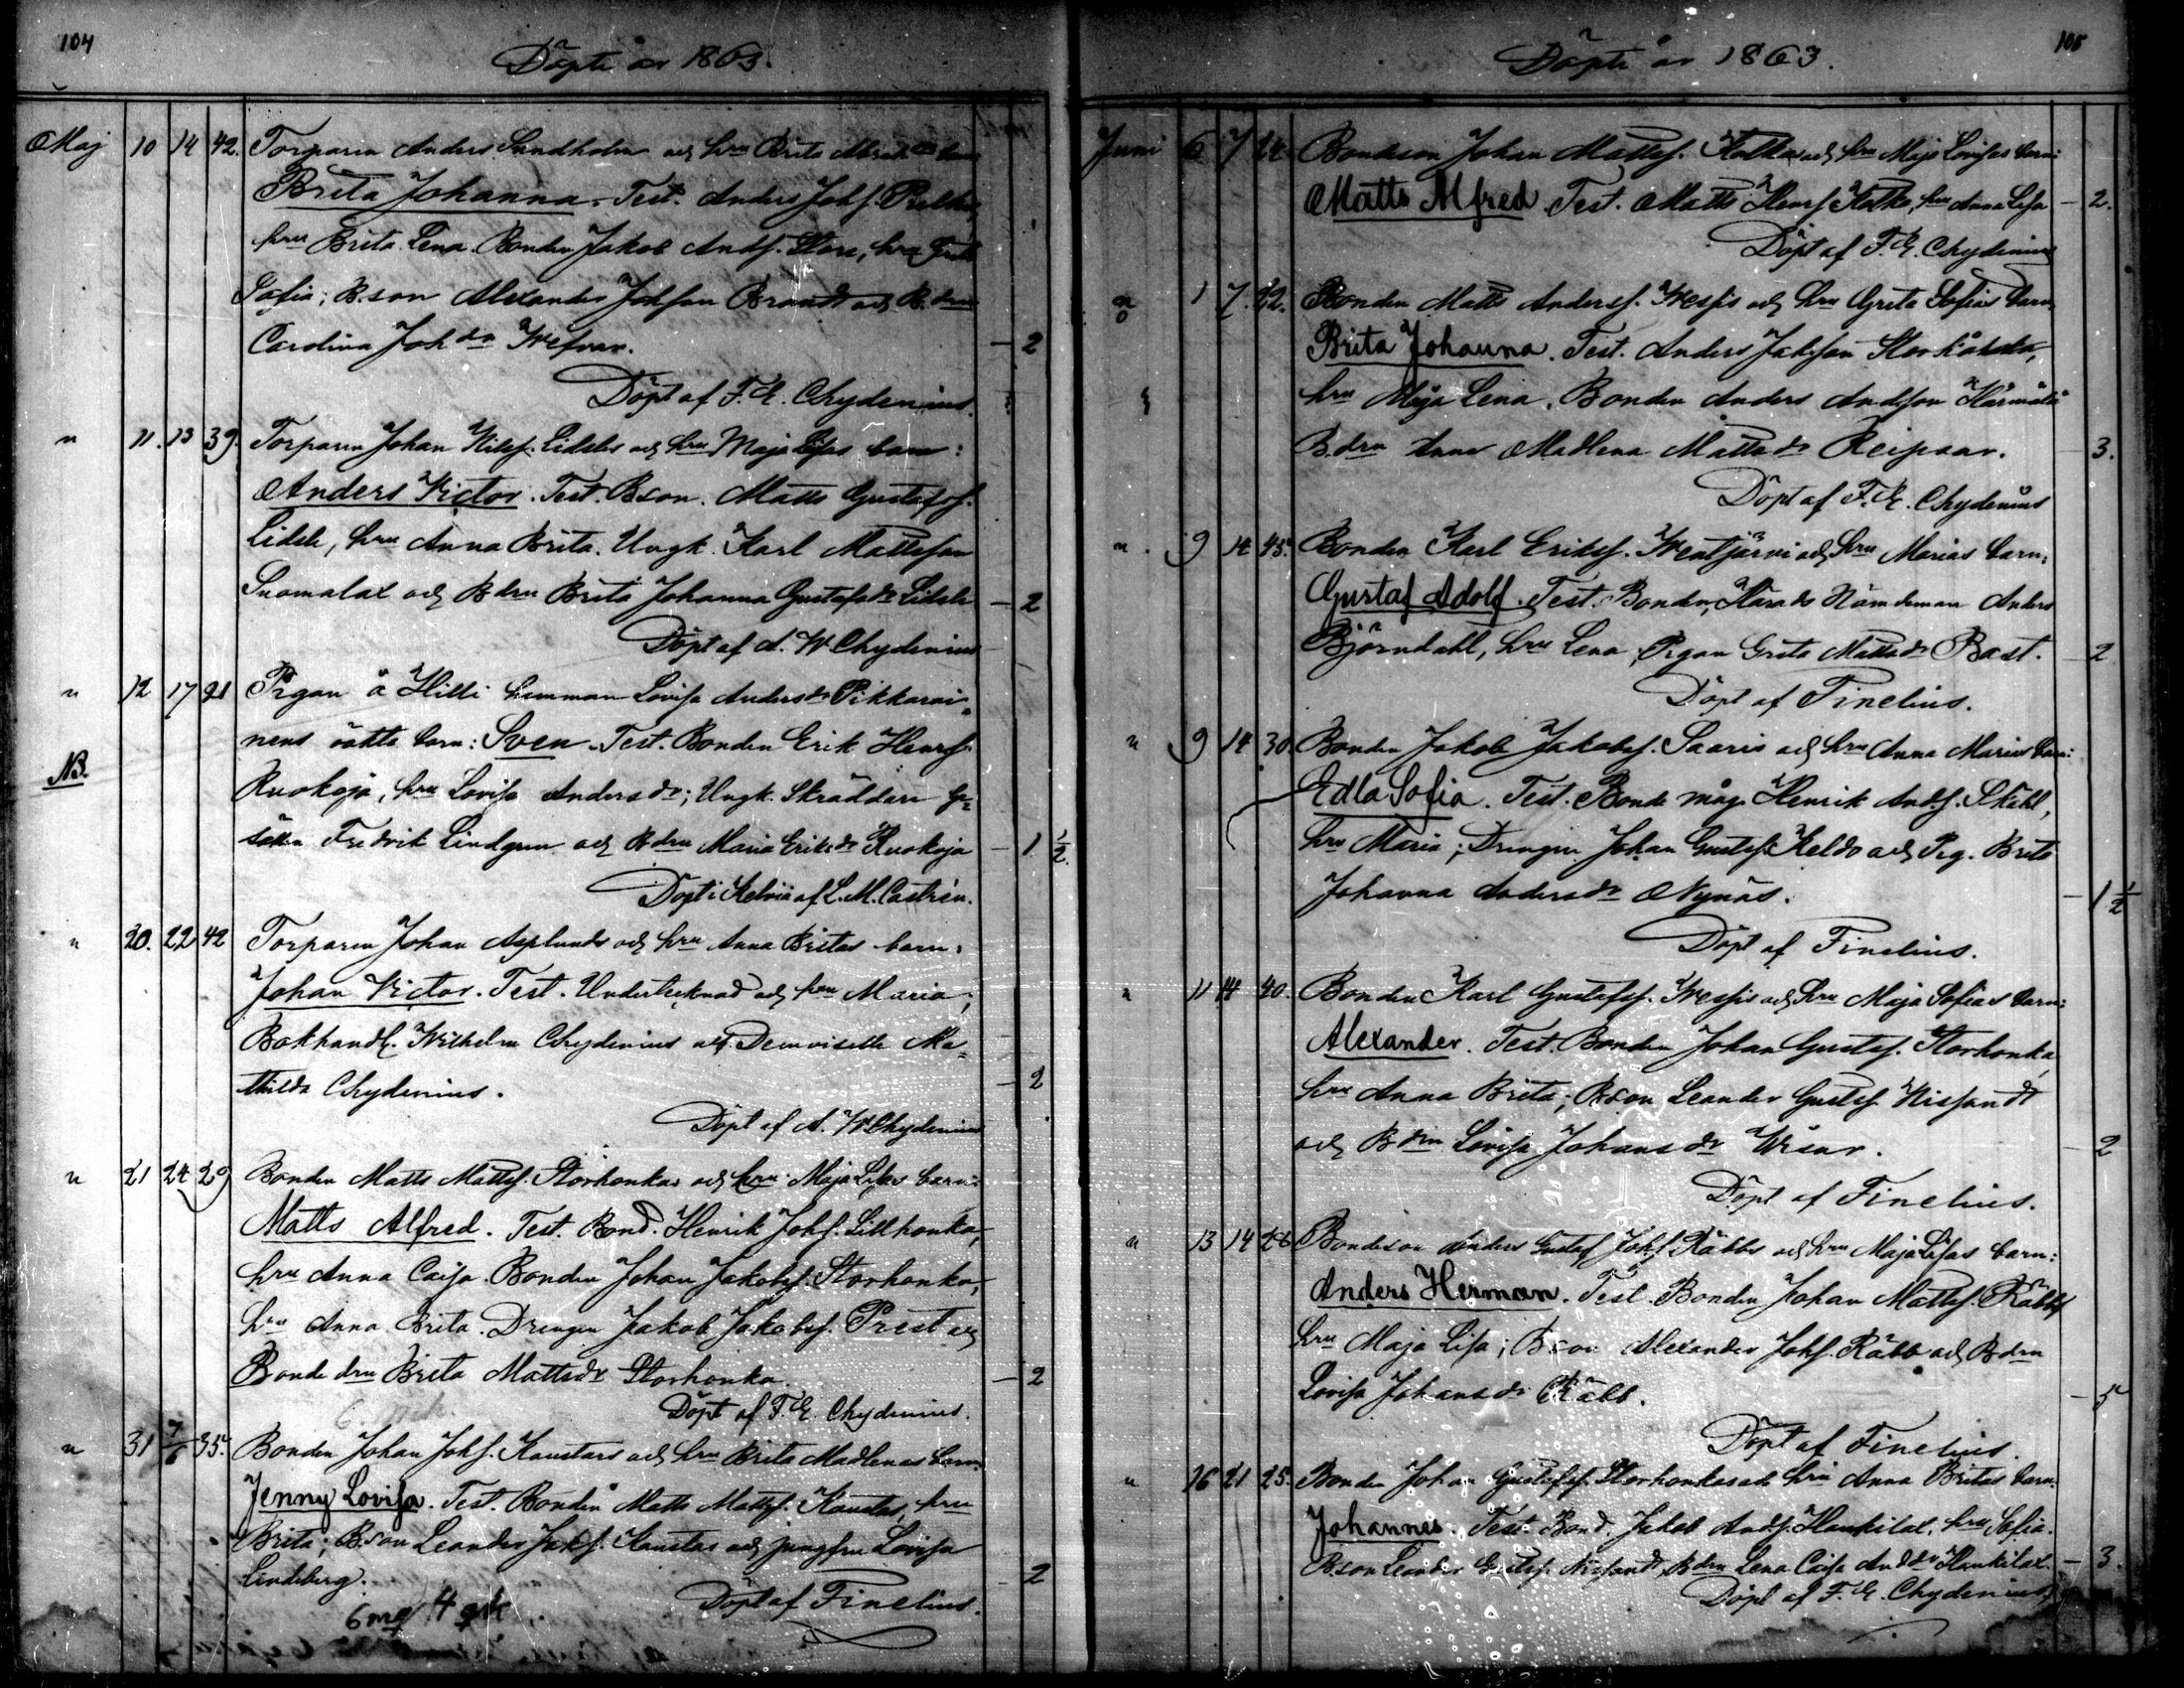 104
Döpte år 1863.
Maj 10 14 42. Torparen Anders Sundholm och hru Brita barn
Brita Johanna. Test. Anders Johs.
hru Brita Lena. Bonden Jakob Ands. Store, hru Greta
Sofia; B.son Alexander Johsson Brandt och B.drn
Carolina Joh.dr — 2
Döpt af F. E. Chydenius.
" 11. 13 39. Torparen Johan Lidsles och hru Maja Lisas barn:
Anders Victor. Test. B.son. Matts Gustafss.
Lidsle, hru Anna Brita. Ungk. Karl Mattsson
Suomalax och B.drn Brita Johanna Gustafsdr Lidsle — 2
Döpt af A. W. Chydenius
" 12 17 21 Pigan å Hilli hemman Lovisa Andersdr Pikkarai-
NB. nens oäkta barn: Sven. Test. Bonden Erik Henrss.
Ruokoja, hru Lovisa Andersdr; Ungk. Skräddare Ge-
sällen Fredrik Lindgren och B.drn Maria Eriksdr Ruokoja — 1 1/2.
Döpt i Kelviå af L. M. Castrén.
" 20. 22 42 Torparen Johan Asplunds och hru Anna Britas barn:
Johan Victor. Test. Undertecknad och hru Maria;
Bokhandl. Wilhelm Chydenius och Demoiselle Ma-
thilda Chydenius. — 2
Döpt af A. W. Chydenius
" 21 24 29 Bonden Matts Mattss. Storhonkas och hru Maja Lisas barn:
Matts Alfred. Test. Bond. Henrik Johs. Lillhonka,
hru Anna Caisa. Bonden Johan Jakobss. Storhonka,
hru Anna Brita. Drengen Jakob Jakobss. Prest och
Bonde drn Brita Mattsdr Storhonka. — 2
Döpt af F. E. Chydenius.
" 31 7/6 35. Bonden Johan Johs. Kaustars och hru Brita Madlenas barn:
Jenny Lovisa. Test. Bonden Matts Mattss. Kaustar, hru
Brita; B.son Leander Johs. Kaustar och jungfru Lovisa
Lindeberg. — 2
6 mq 4 qk Döpt af Finelius.
105
Döpte år 1863.
Juni 6 7 Bondeson Johan Mattss. Kotka och hru Maja Lovisas barn:
Matts Alfred. Test. Matts Henrs. Kotka, hru Anna Lisa — 2.
Döpt af F. E. Chydenius
" 1 7. 22. Bonden Matts Anderss. Wespis och hru Greta Sofias barn:
Brita Johanna. Test. Anders
hru Maja Lena. Bonden Anders Andsson Härmälä
B.drn Anna Madlena Mattsdr Reipsar. — 3.
Döpt af F. E. Chydenius
" 9 14 45. Bonden Karl Erikss. Weatjärvi och hru Marias barn:
Gustaf Adolf. Test. Bonden, Härads Nämdeman Anders
Björndahl, hru Lena, Pigan Greta Mattsdr Bast. — 2
Döpt af Finelius.
" 9 14 30. Bonden Jakob Jakobss. Saaris och hru Anna Marias barn:
Edla Sofia. Test. Bonde måg. Henrik Ands. Skåhl,
hru Maria; Drengen Johan Gustafs. Keldo och Pig. Brita
Johanna Andersdr Nynäs. — 1 1/2
Döpt af Finelius.
" 11 14 40. Bonden Karl Gustafss. Wespis och hru Maja Sofias barn:
Alexander. Test. Bonden Johan Gustafs. Storhonka,
hru Anna Brita; B.son Leander Gustafs. Nissand
och B.drn Lovisa Johansdr Wisar. — 2
Döpt af Finelius.
" 13 14 26 Bondeson Anders Gustaf Johs. Råbbs och hru Maja Lisas barn:
Anders Herman. Test. Bonden Johan Mattss. Råbb,
hru Maja Lisa; B.son Alexander Johs. Råbb och B.drn
Lovisa Johansdr Råbb. — 5
Döpt af Finelius.
" 16 21 25. Bonden Johan Gustafss. Storhonkas och hru Anna Britas barn:
Johannes. Test. Bond. Jakob Ands. Hankilax, hru Sofia.
B.son Leander Gustafs. Nissand, B.drn Lena Caisa Anddr Hankilax. — 3.
Döpt af F. E. Chydenius